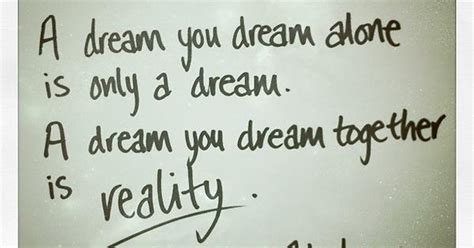 A dream you dream alone
is only a dream.
A dream you dream together
is reality.